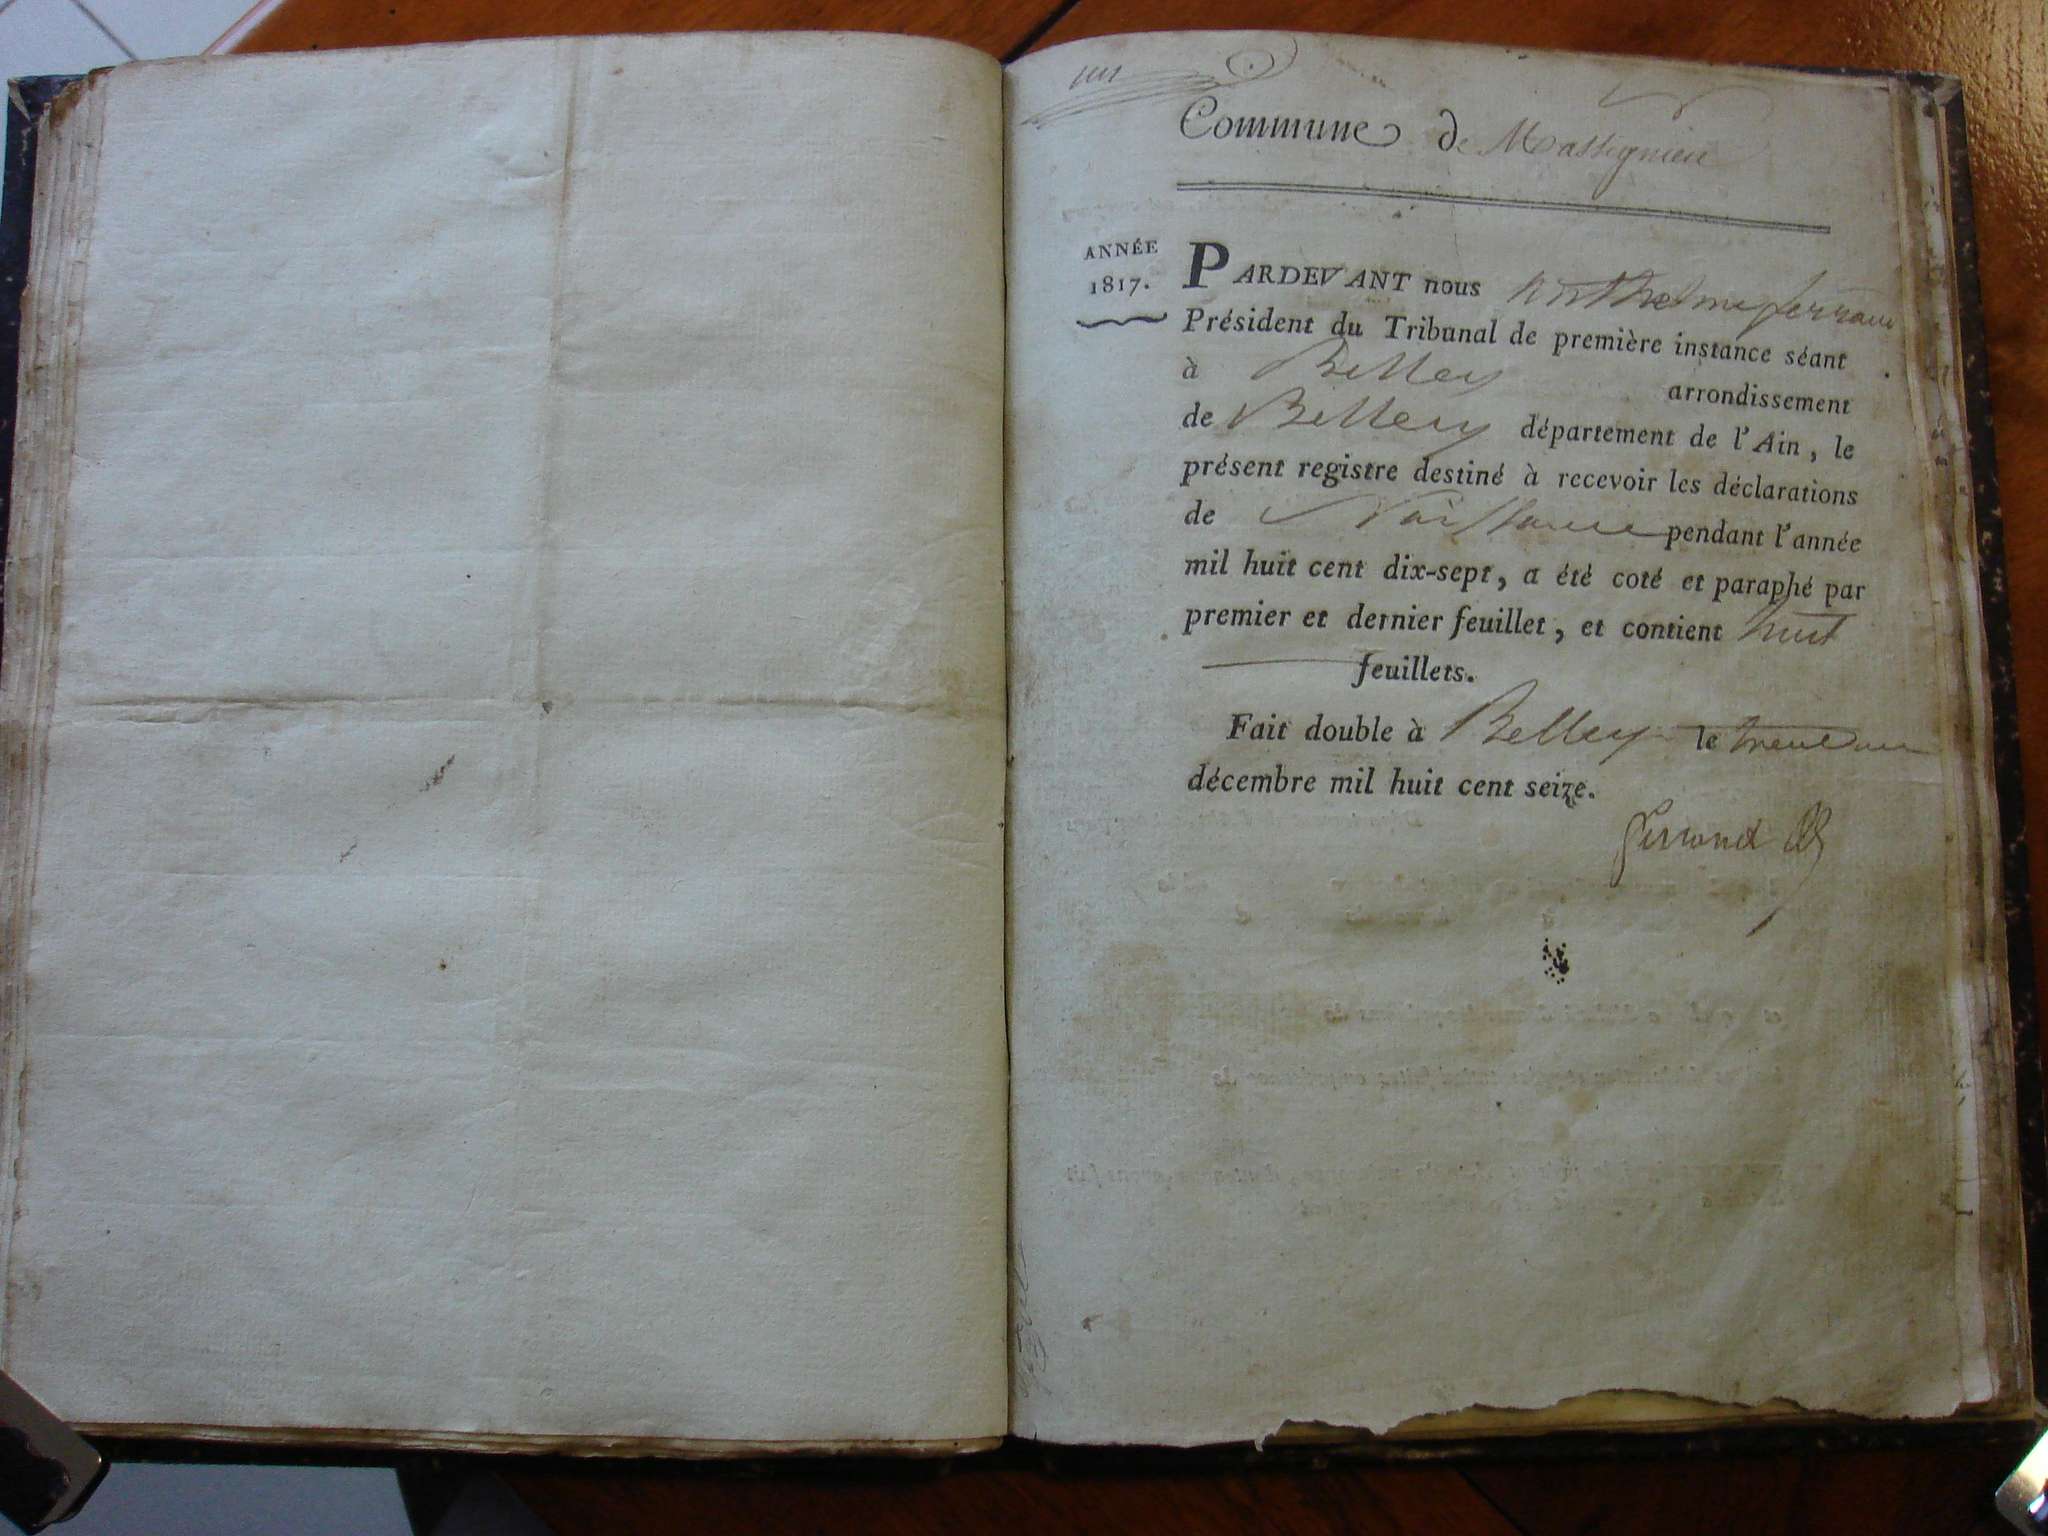 un
Commune de Massignieu
ANNÉE
1817.
PARDEVANT nous Anthelme ferrand
Président du Tribunal de première instance séant
à Belley arrondissement
de Belley département de l'Ain, le
présent registre destiné à recevoir les déclarations
de Naissance pendant l'année
mil huit cent dix-sept, a été coté et paraphé par
premier et dernier feuillet, et contient huit
feuillets.
Fait double à Belley le trente un
décembre mil huit cent seize.
ferrand